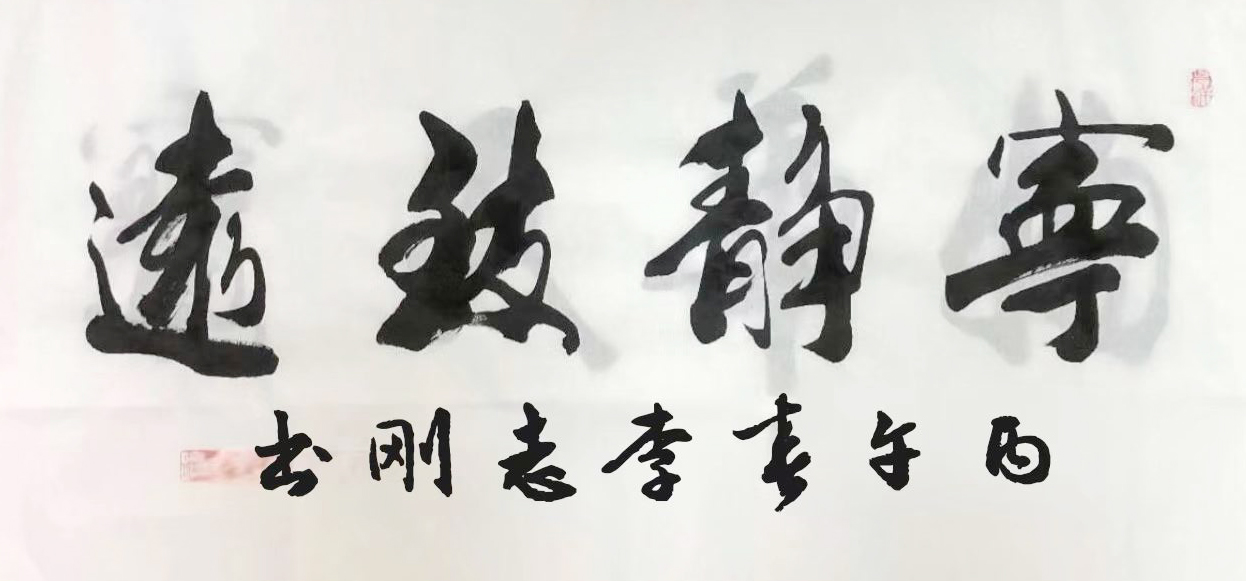 寧靜致遠
丙午春李志刚书